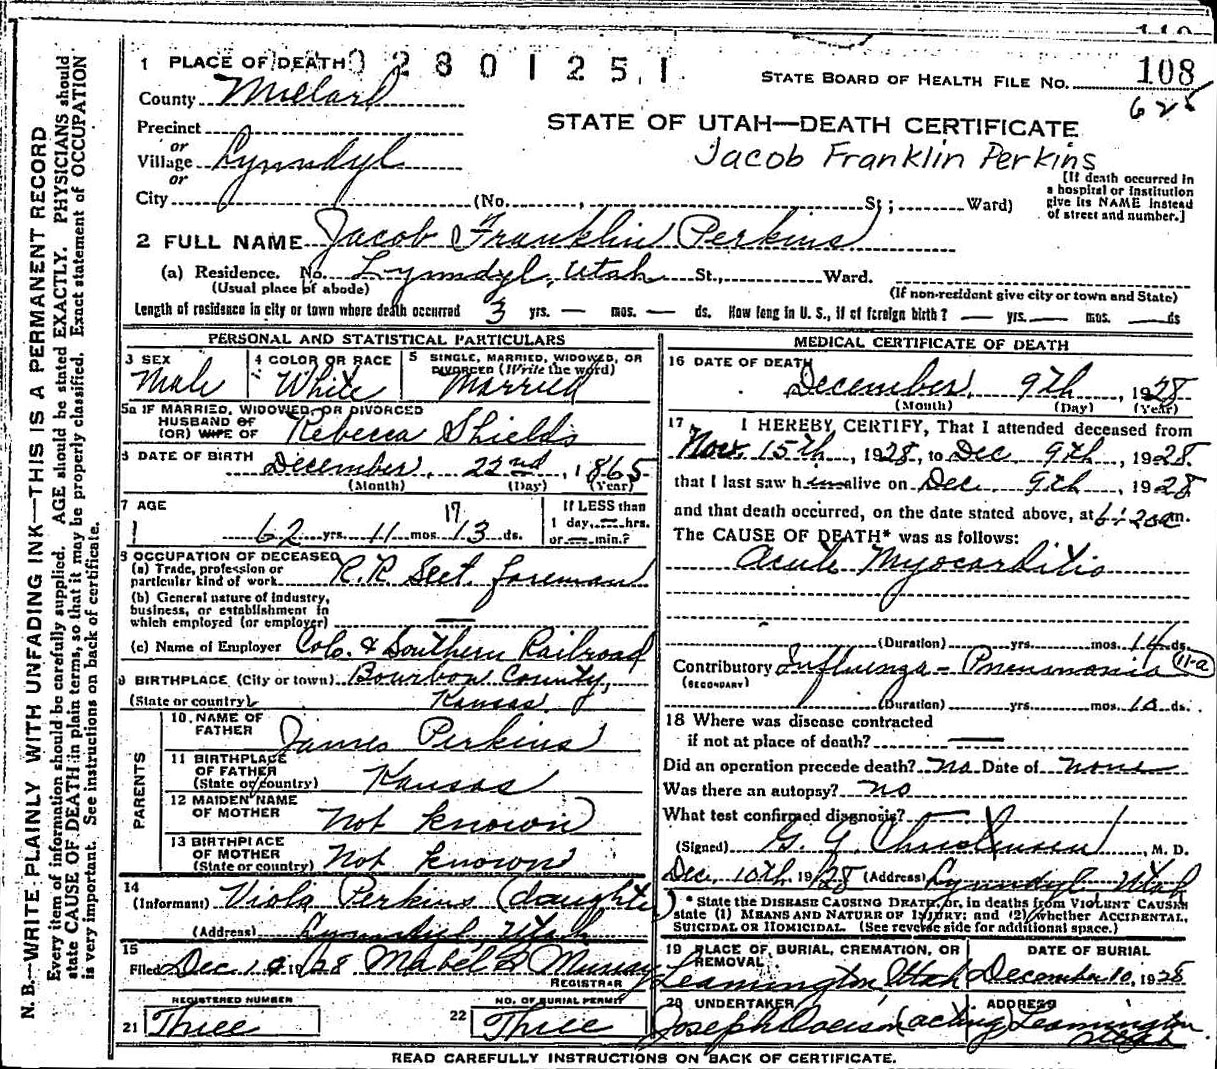 N. B.—WRITE PLAINLY WITH UNFADING INK—THIS IS A PERMANENT RECORD
Every item of information should be carefully supplied. AGE should be stated EXACTLY. PHYSICIANS should
state CAUSE OF DEATH in plain terms, so that it may be properly classified. Exact statement of OCCUPATION
is very important. See instructions on back of certificate.
1 PLACE OF DEATH 0 2 8 0 1 2 5 1
STATE BOARD OF HEALTH FILE NO. 108
625
County Millard
Precinct
or
Village Lynndyl
or
City (No. , St; Ward)
STATE OF UTAH—DEATH CERTIFICATE
Jacob Franklin Perkins
[If death occurred in
a hospital or institution
give its NAME instead
of street and number.]
2 FULL NAME Jacob Franklin Perkins
(a) Residence. No. Lynndyl, Utah St., Ward.
(Usual place of abode) (If non-resident give city or town and State)
Length of residence in city or town where death occurred 3 yrs. — mos. — ds. How long in U. S., if of foreign birth? — yrs. — mos. — ds
PERSONAL AND STATISTICAL PARTICULARS
3 SEX
Male
4 COLOR OR RACE
White
5 SINGLE, MARRIED, WIDOWED, OR
DIVORCED (Write the word)
Married
5a IF MARRIED, WIDOWED, OR DIVORCED
HUSBAND OF
(OR) WIFE OF Rebecca Shields
6 DATE OF BIRTH December 22nd, 1865
(Month) (Day) (Year)
7 AGE
62 yrs. 11 mos. 17 13 ds.
If LESS than
1 day, — hrs.
or — min.?
8 OCCUPATION OF DECEASED
(a) Trade, profession or
particular kind of work R.R. Sect. foreman
(b) General nature of industry,
business, or establishment in
which employed (or employer) —
(c) Name of Employer Colo. & Southern Railroad
9 BIRTHPLACE (City or town) Bourbon County,
(State or country) Kansas
PARENTS
10. NAME OF
FATHER James Perkins
11 BIRTHPLACE
OF FATHER
(State or country) Kansas
12 MAIDEN NAME
OF MOTHER Not known
13 BIRTHPLACE
OF MOTHER
(State or country) Not known
14
(Informant) Viola Perkins (daughter)
(Address) Lynndyl, Utah
15
Filed Dec 10 19/28 Mabel Murray
REGISTRAR
REGISTERED NUMBER
21 Three
NO. OF BURIAL PERMIT
22 Three
MEDICAL CERTIFICATE OF DEATH
16 DATE OF DEATH
December 9th, 1928
(Month) (Day) (Year)
17 I HEREBY CERTIFY, That I attended deceased from
Nov. 15th, 1928, to Dec 9th, 1928.
that I last saw him alive on Dec. 9th, 1928
and that death occurred, on the date stated above, at 6:20 am.
The CAUSE OF DEATH* was as follows:
Acute Myocarditis
(Duration) yrs. mos. 14 ds.
Contributory Influenza - Pneumonia 11-a
(SECONDARY)
(Duration) yrs. mos. 10 ds.
18 Where was disease contracted
if not at place of death? —
Did an operation precede death? no Date of none
Was there an autopsy? no
What test confirmed diagnosis?
(Signed) G. Y. Christensen, M. D.
Dec. 10th, 19/28 (Address) Lynndyl Utah
* State the DISEASE CAUSING DEATH, or, in deaths from VIOLENT CAUSES
state (1) MEANS AND NATURE OF INJURY: and (2) whether ACCIDENTAL,
SUICIDAL OR HOMICIDAL. (See reverse side for additional space.)
19 PLACE OF BURIAL, CREMATION, OR
REMOVAL
Leamington, Utah
DATE OF BURIAL
December 10, 1928
20 UNDERTAKER
Joseph (acting)
ADDRESS
Leamington
Utah
READ CAREFULLY INSTRUCTIONS ON BACK OF CERTIFICATE.